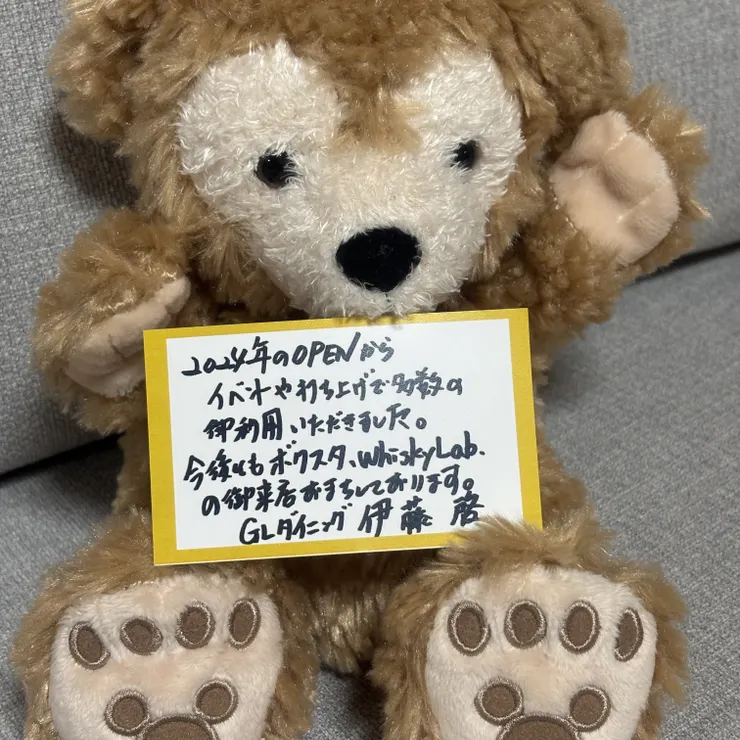 2024年のOPENから
イベントや打ち上げで多数の
御利用いただきました。
今後ともボクスタ、Whisky Lab.
の御来店おまちしております。
GLダイニング 伊藤 啓